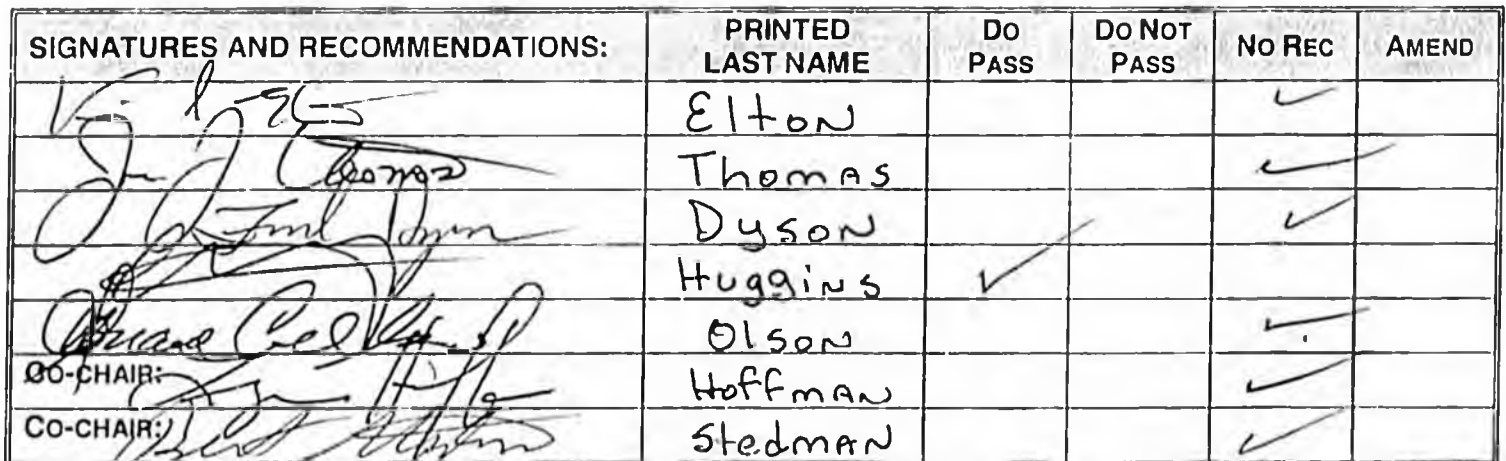 SIGNATURES AND RECOMMENDATIONS: PRINTED LAST NAME DO PASS DO NOT PASS NO REC AMEND
Elton ✓
Thomas Thomas ✓
Fred Dyson Dyson ✓
Huggins ✓
Olson ✓
CO-CHAIR: Hoffman ✓
CO-CHAIR: Bert Stedman Stedman ✓